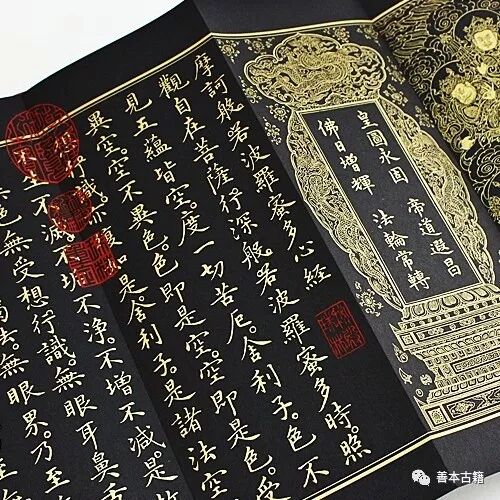 皇圖永固 帝道遐昌
佛日增輝 法輪常轉
摩訶般若波羅蜜多心經
觀自在菩薩行深般若波羅蜜多時。照
見五蘊皆空。度一切苦厄。舍利子。色不
異空。空不異色。色即是空。空即是色。受
想行識。亦復如是。舍利子。是諸法空
不生不滅。不垢不淨。不增不減。是故
色無受想行識。無眼耳鼻舌
法。無眼界。乃至
善本古籍